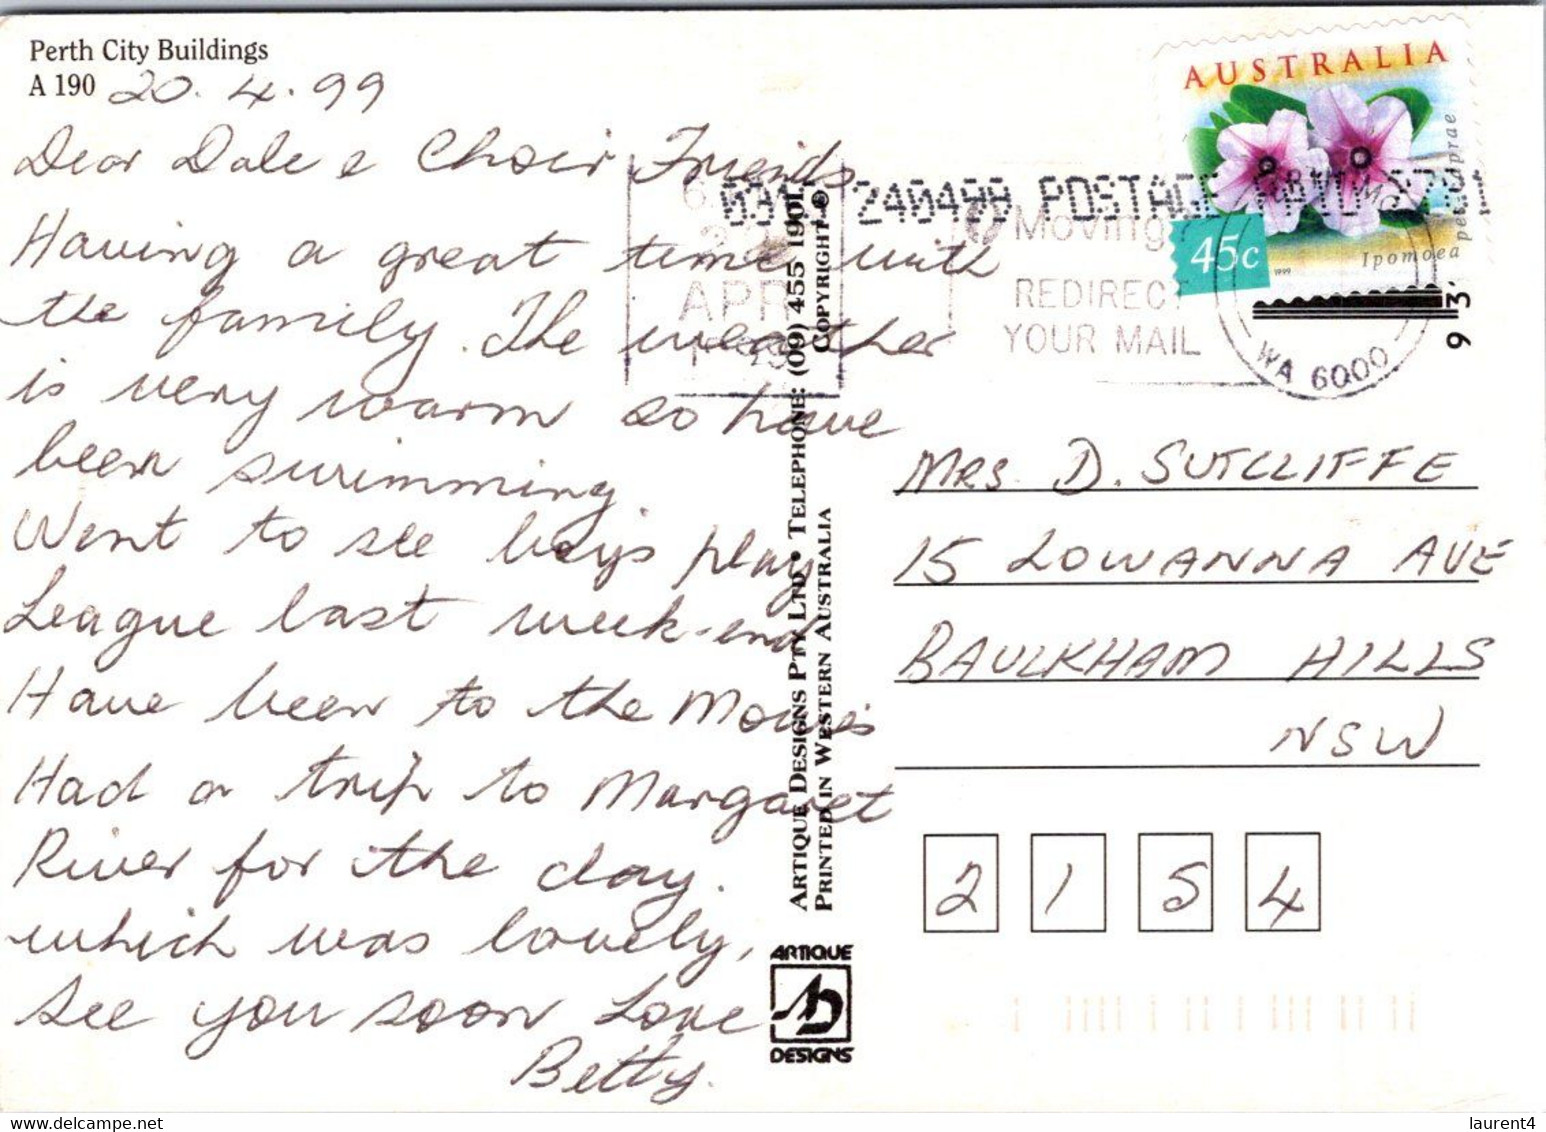 Perth City Buildings
A 190 20.4.99
Dear Dale & Choir Friends
Having a great time with
the family. The weather
is very warm so have
been swimming
Went to see boys play
League last week-end
Have been to the Movies
Had a trip to Margaret
River for the day.
which was lovely,
See you soon Love
Betty.
ARTIQUE DESIGNS PTY LTD • TELEPHONE: (09) 455 1901
PRINTED IN WESTERN AUSTRALIA
COPYRIGHT ©
ARTIQUE
DESIGNS
AUSTRALIA
45c
1999
Ipomoea pes-caprae
240499 POSTAGE
APR
Moving?
REDIRECT
YOUR MAIL
WA 6000
MRS. D. SUTCLIFFE
15 LOWANNA AVE
BAULKHAM HILLS
NSW
2 1 5 4
laurent4